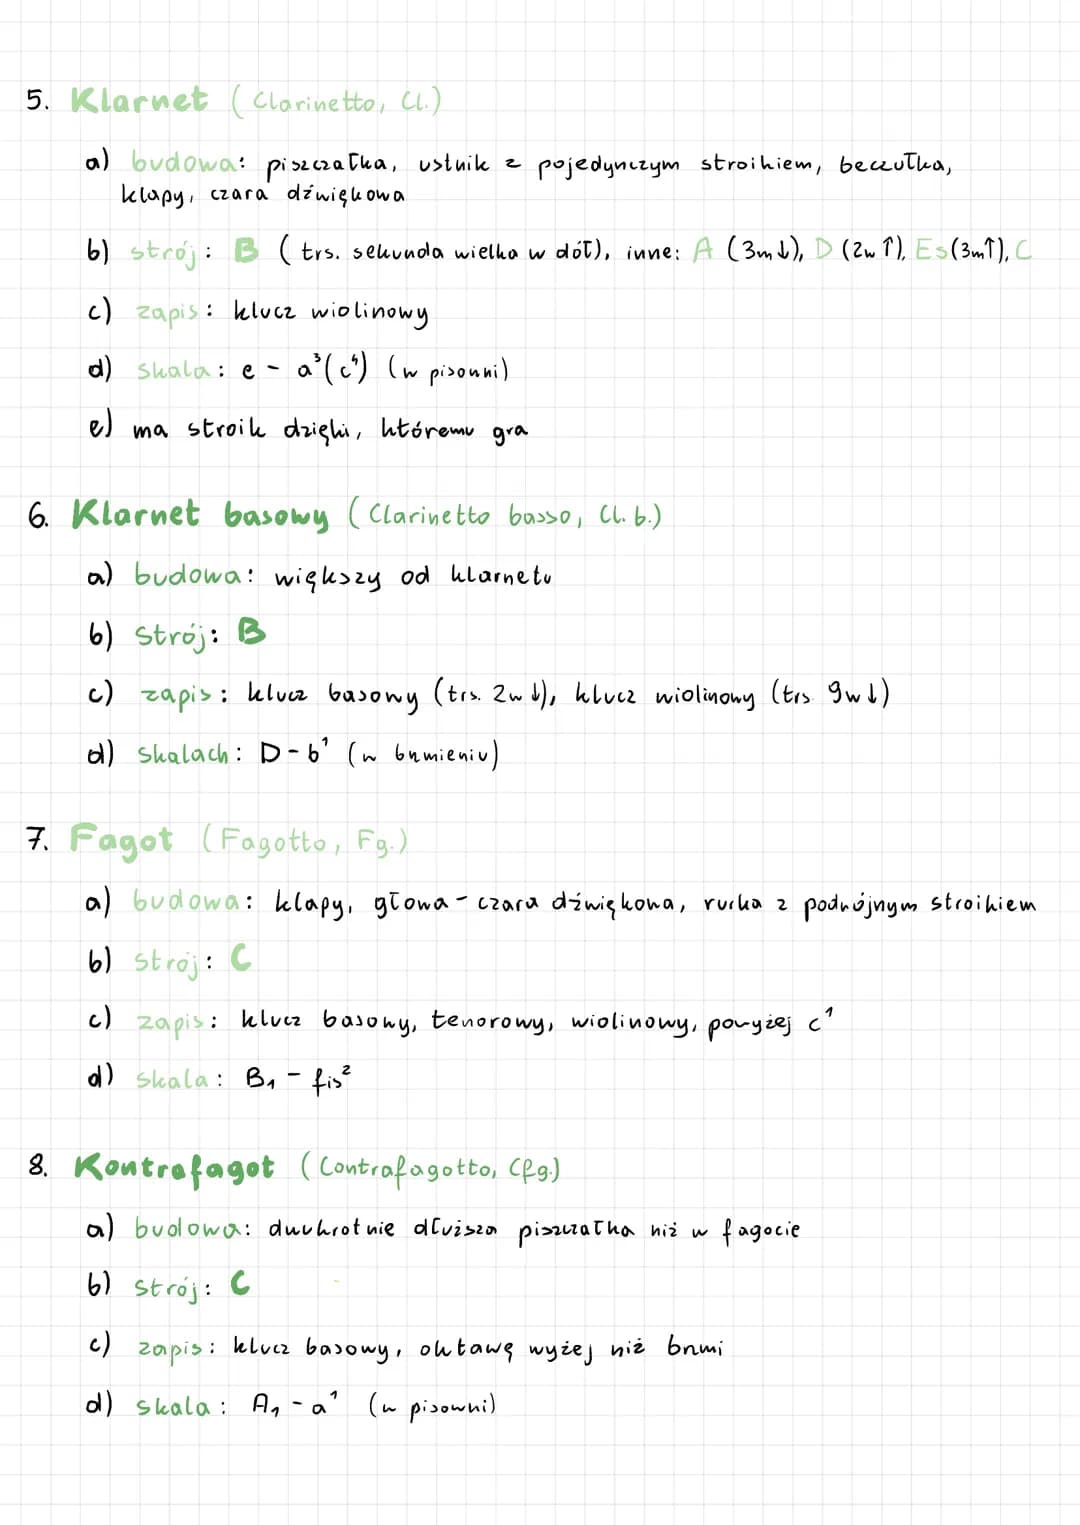 5. Klarnet (Clarinetto, Cl.)
a) budowa: piszczałka, ustnik z pojedynczym stroikiem, beczułka,
klapy, czara dźwiękowa
b) strój: B (trs. sekunda wielka w dół), inne: A (3m↓), D (2w↑), Es (3m↑), C
c) zapis: klucz wiolinowy
d) skala: e - a³(c⁴) (w pisowni)
e) ma stroik dzięki, któremu gra
6. Klarnet basowy (Clarinetto basso, Cl. b.)
a) budowa: większy od klarnetu
b) strój: B
c) zapis: klucz basowy (trs. 2w↓), klucz wiolinowy (trs. 9w↓)
d) skalach: D - b¹ (w brzmieniu)
7. Fagot (Fagotto, Fg.)
a) budowa: klapy, głowa - czara dźwiękowa, rurka z podwójnym stroikiem
b) strój: C
c) zapis: klucz basowy, tenorowy, wiolinowy, powyżej c¹
d) skala: B₁ - fis²
8. Kontrafagot (Contrafagotto, Cfg.)
a) budowa: dwukrotnie dłuższa piszczałka niż w fagocie
b) strój: C
c) zapis: klucz basowy, oktawę wyżej niż brzmi
d) skala: A₁ - a¹ (w pisowni)